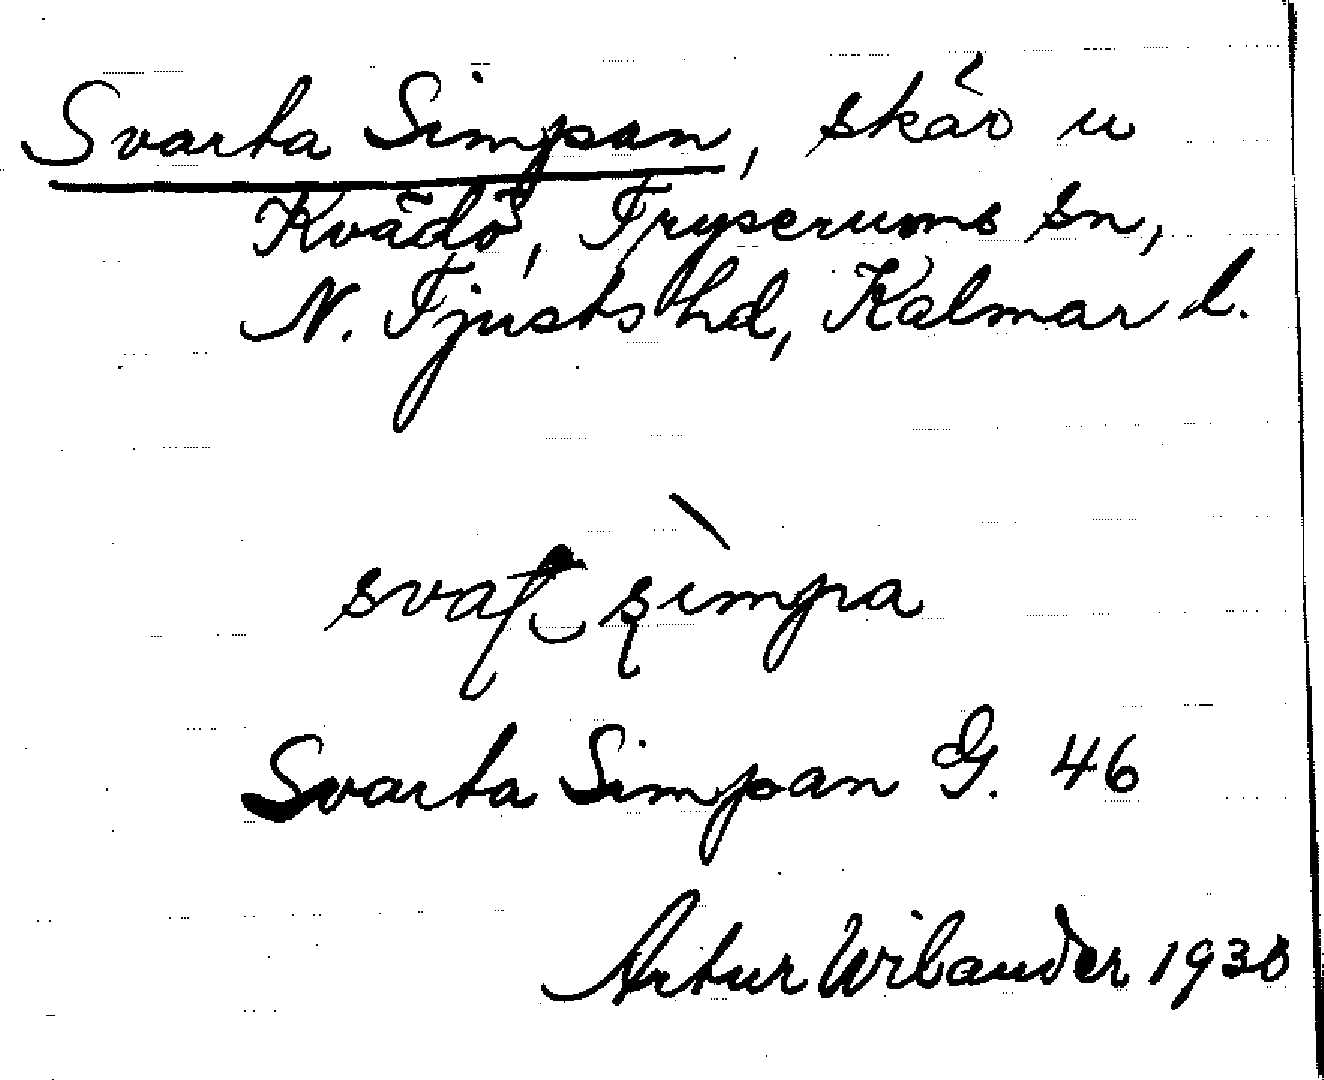 Svarta Simpan, skär u
Kvädö, Tryserums sn,
N. Tjusts hd, Kalmar l.
simpa
Svarta Simpan G. 46
Artur Wilander 1930